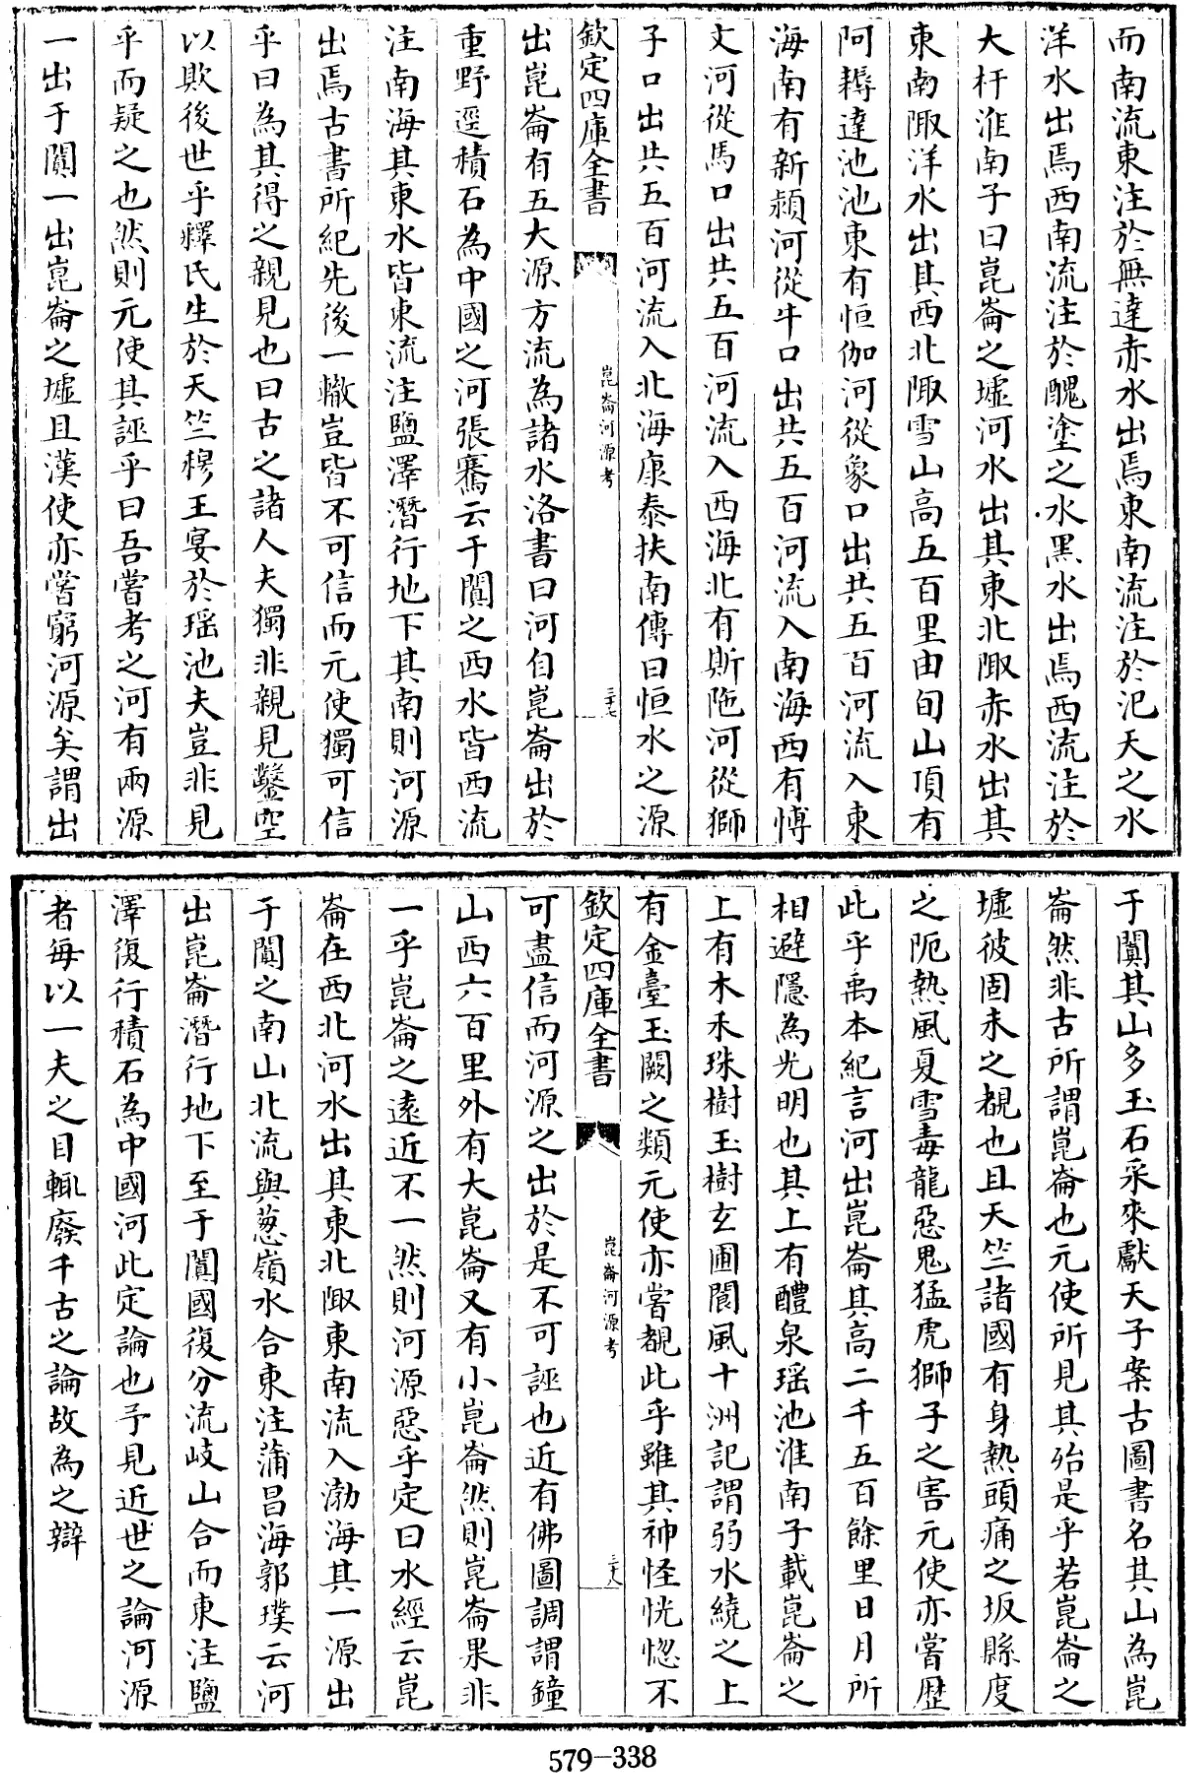 而南流東注於無達赤水出焉東南流注於汜天之水
洋水出焉西南流注於醜塗之水黑水出焉西流注於
大杅淮南子曰崑崙之墟河水出其東北陬赤水出其
東南陬洋水出其西北陬雪山高五百里由旬山頂有
阿耨達池池東有恒伽河從象口出共五百河流入東
海南有新頭河從牛口出共五百河流入南海西有博
文河從馬口出共五百河流入西海北有斯陁河從獅
子口出共五百河流入北海康泰扶南傳曰恒水之源
欽定四庫全書
崑崙河源考
三十七
出崑崙有五大源方流為諸水洛書曰河自崑崙出於
重野逕積石為中國之河張騫云于闐之西水皆西流
注南海其東水皆東流注鹽澤潛行地下其南則河源
出焉古書所紀先後一轍豈皆不可信而元使獨可信
乎曰為其得之親見也曰古之諸人夫獨非親見鑿空
以欺後世乎釋氏生於天竺穆王宴於瑶池夫豈非見
乎而疑之也然則元使其誣乎曰吾嘗考之河有兩源
一出于闐一出崑崙之墟且漢使亦嘗窮河源矣謂出
于闐其山多玉石采來獻天子案古圖書名其山為崑
崙然非古所謂崑崙也元使所見其殆是乎若崑崙之
墟彼固未之覩也且天竺諸國有身熱頭痛之坂縣度
之阨熱風夏雪毒龍惡鬼猛虎獅子之害元使亦嘗歷
此乎禹本紀言河出崑崙其高二千五百餘里日月所
相避隱為光明也其上有醴泉瑶池淮南子載崑崙之
上有木禾珠樹玉樹玄圃閬風十洲記謂弱水繞之上
有金臺玉闕之類元使亦嘗覩此乎雖其神怪恍惚不
欽定四庫全書
崑崙河源考
三十八
可盡信而河源之出於是不可誣也近有佛圖調謂鐘
山西六百里外有大崑崙又有小崑崙然則崑崙果非
一乎崑崙之遠近不一然則河源惡乎定曰水經云崑
崙在西北河水出其東北陬東南流入渤海其一源出
于闐之南山北流與葱嶺水合東注蒲昌海郭璞云河
出崑崙潛行地下至于闐國復分流岐山合而東注鹽
澤復行積石為中國河此定論也予見近世之論河源
者每以一夫之目輒廢千古之論故為之辯
579-338